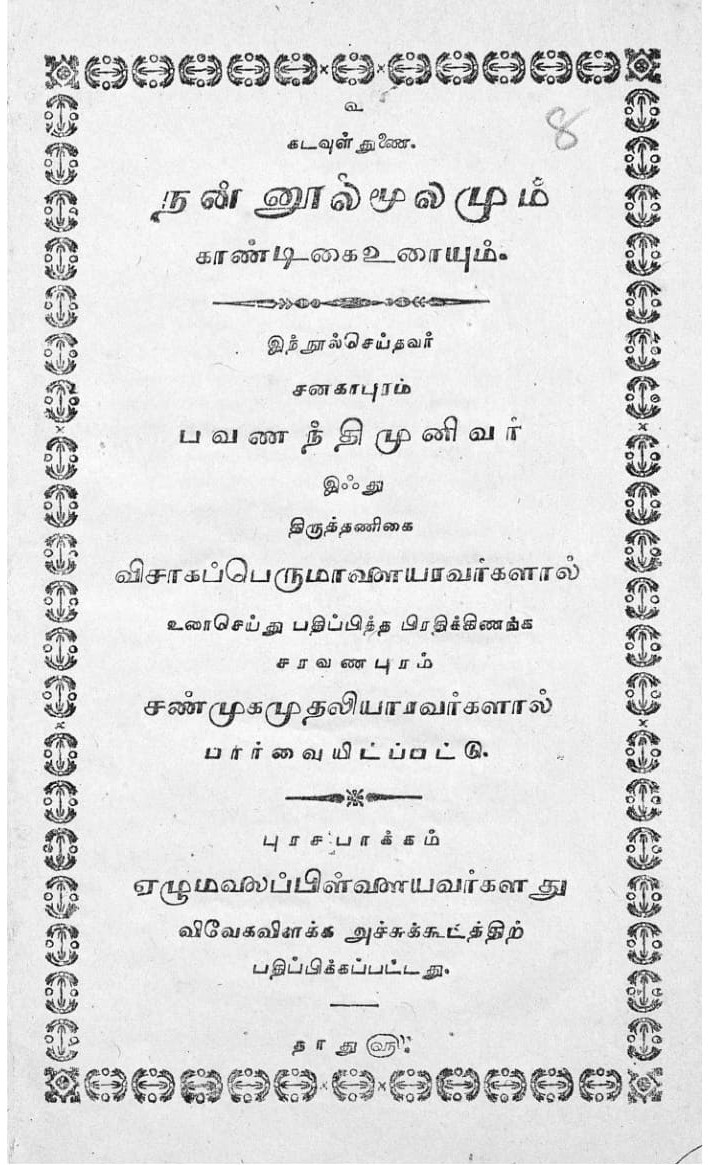 உ
8
கடவுள் துணை.
நன்னூல்மூலமும்
காண்டிகைஉரையும்.
இந்நூல்செய்தவர்
சனகாபுரம்
பவணந்திமுனிவர்
இஃது
திருத்தணிகை
விசாகப்பெருமாளையரவர்களால்
உரைசெய்து பதிப்பித்த பிரதிக்கிணங்க
சரவணபுரம்
சண்முகமுதலியாரவர்களால்
பார்வையிட்ப்பட்டு.
புரசபாக்கம்
ஏழுமலைப்பிள்ளையவர்களது
விவேகவிளக்க அச்சுக்கூடத்திற்
பதிப்பிக்கப்பட்டது.
தாது௵.